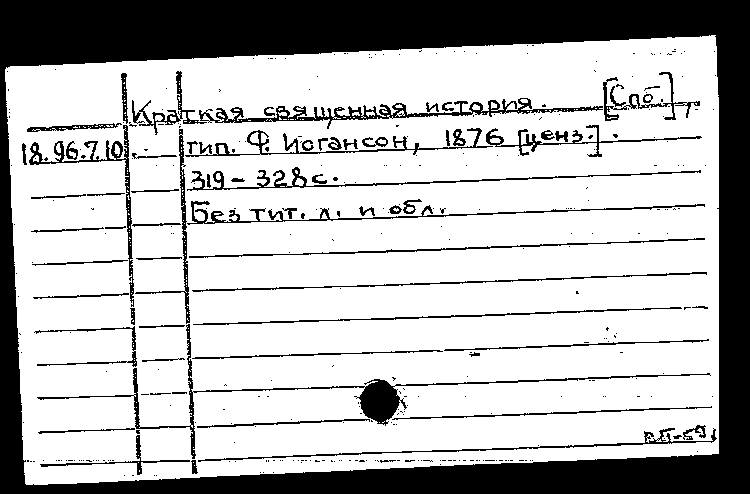 Краткая священная история. [Спб.],
18.96.7.10. тип. Ф. Иогансон, 1876 [ценз.].
319-328 с.
Без тит. л. и обл.